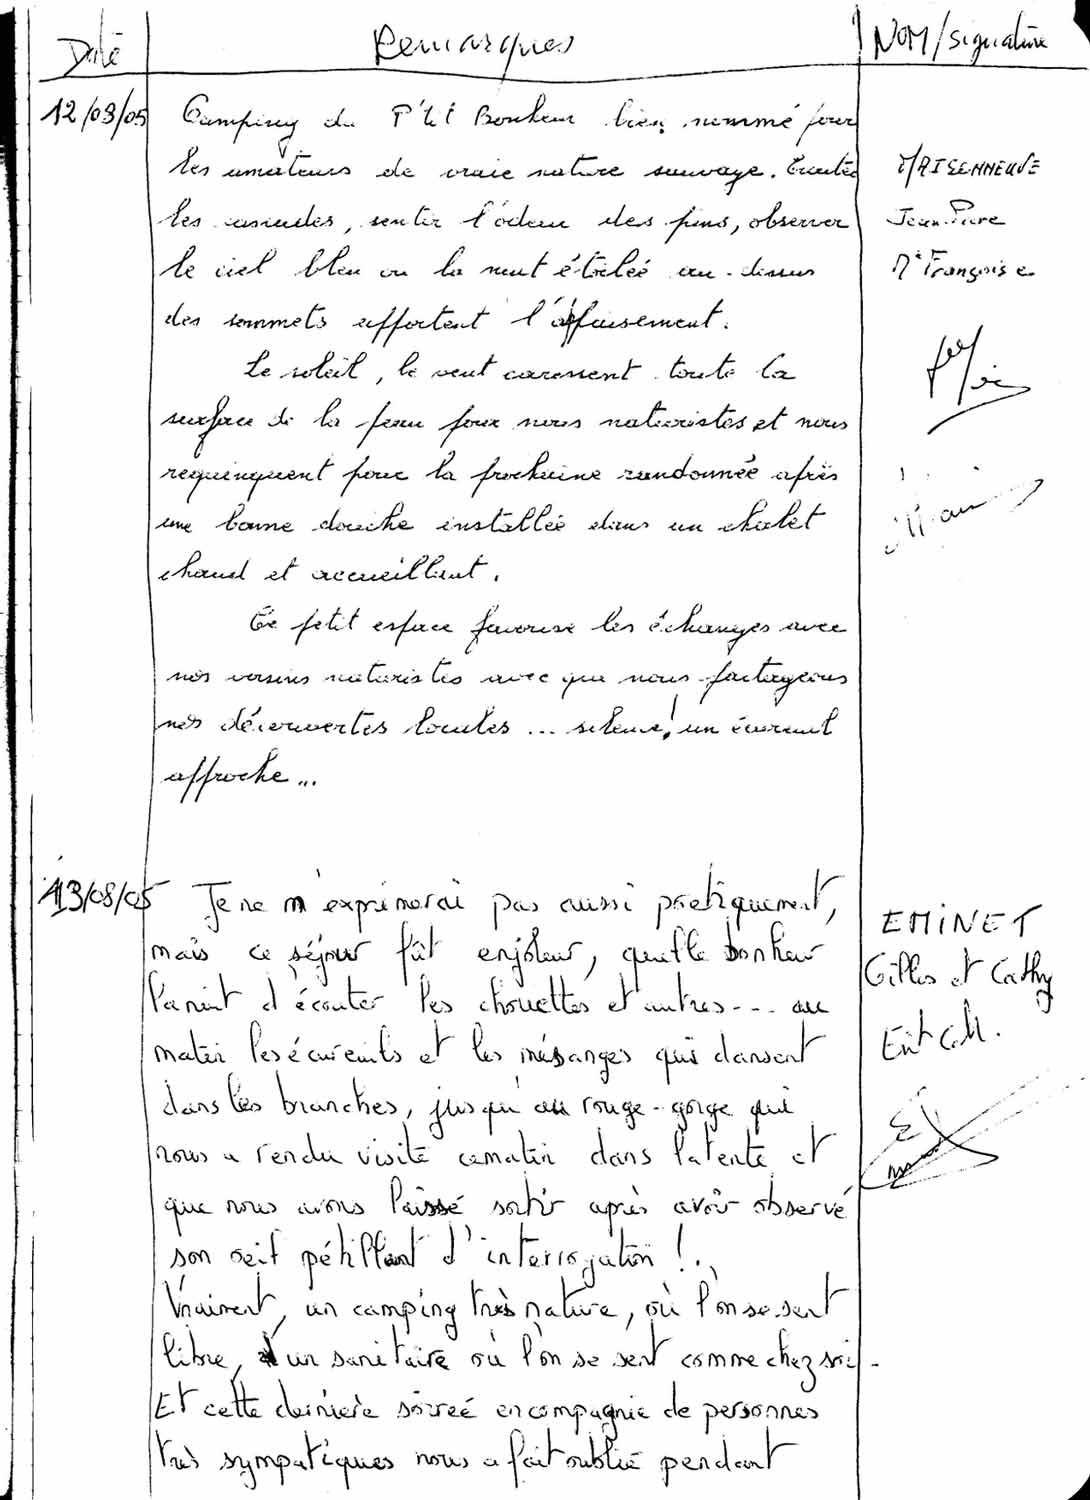 Date Remarques NOM/signature
12/08/05 Camping du P'tit Bonheur bien nommé pour
les amateurs de vraie nature sauvage. Ecouter MAISONNEUVE
les cascades, sentir l'odeur des pins, observer Jean Pierre
le ciel bleu ou la nuit étoilée au-dessus Me Françoise
des sommets apportent l'apaisement.
Le soleil, le vent caressent toute la
surface de la peau pour nous naturistes et nous
requinquent pour la prochaine randonnée après
une bonne douche installée dans un chalet
chaud et accueillant.
Ce petit espace favorise les échanges avec
nos voisins naturistes avec qui nous partageons
nos découvertes locales ... silence! un écureuil
approche...
13/08/05 Je ne m'exprimerai pas aussi poetiquement, EMINET
mais ce séjour fût enjoleur, quelle bonheur Gilles et Cathy
la nuit d'écouter les chouettes et autres... au
matin les écureuils et les mésanges qui dansent
dans les branches, jusqu'au rouge-gorge qui
nous a rendu visite ce matin dans la tente et
que nous avons laissé sortir après avoir observé
son oeil pétillant d'interrogation !..
Vraiment, un camping très nature, où l'on se sent
libre, d'un sanitaire où l'on se sent comme chez soi.
Et cette dernière soirée en compagnie de personnes
très sympatiques nous a fait oublié pendant